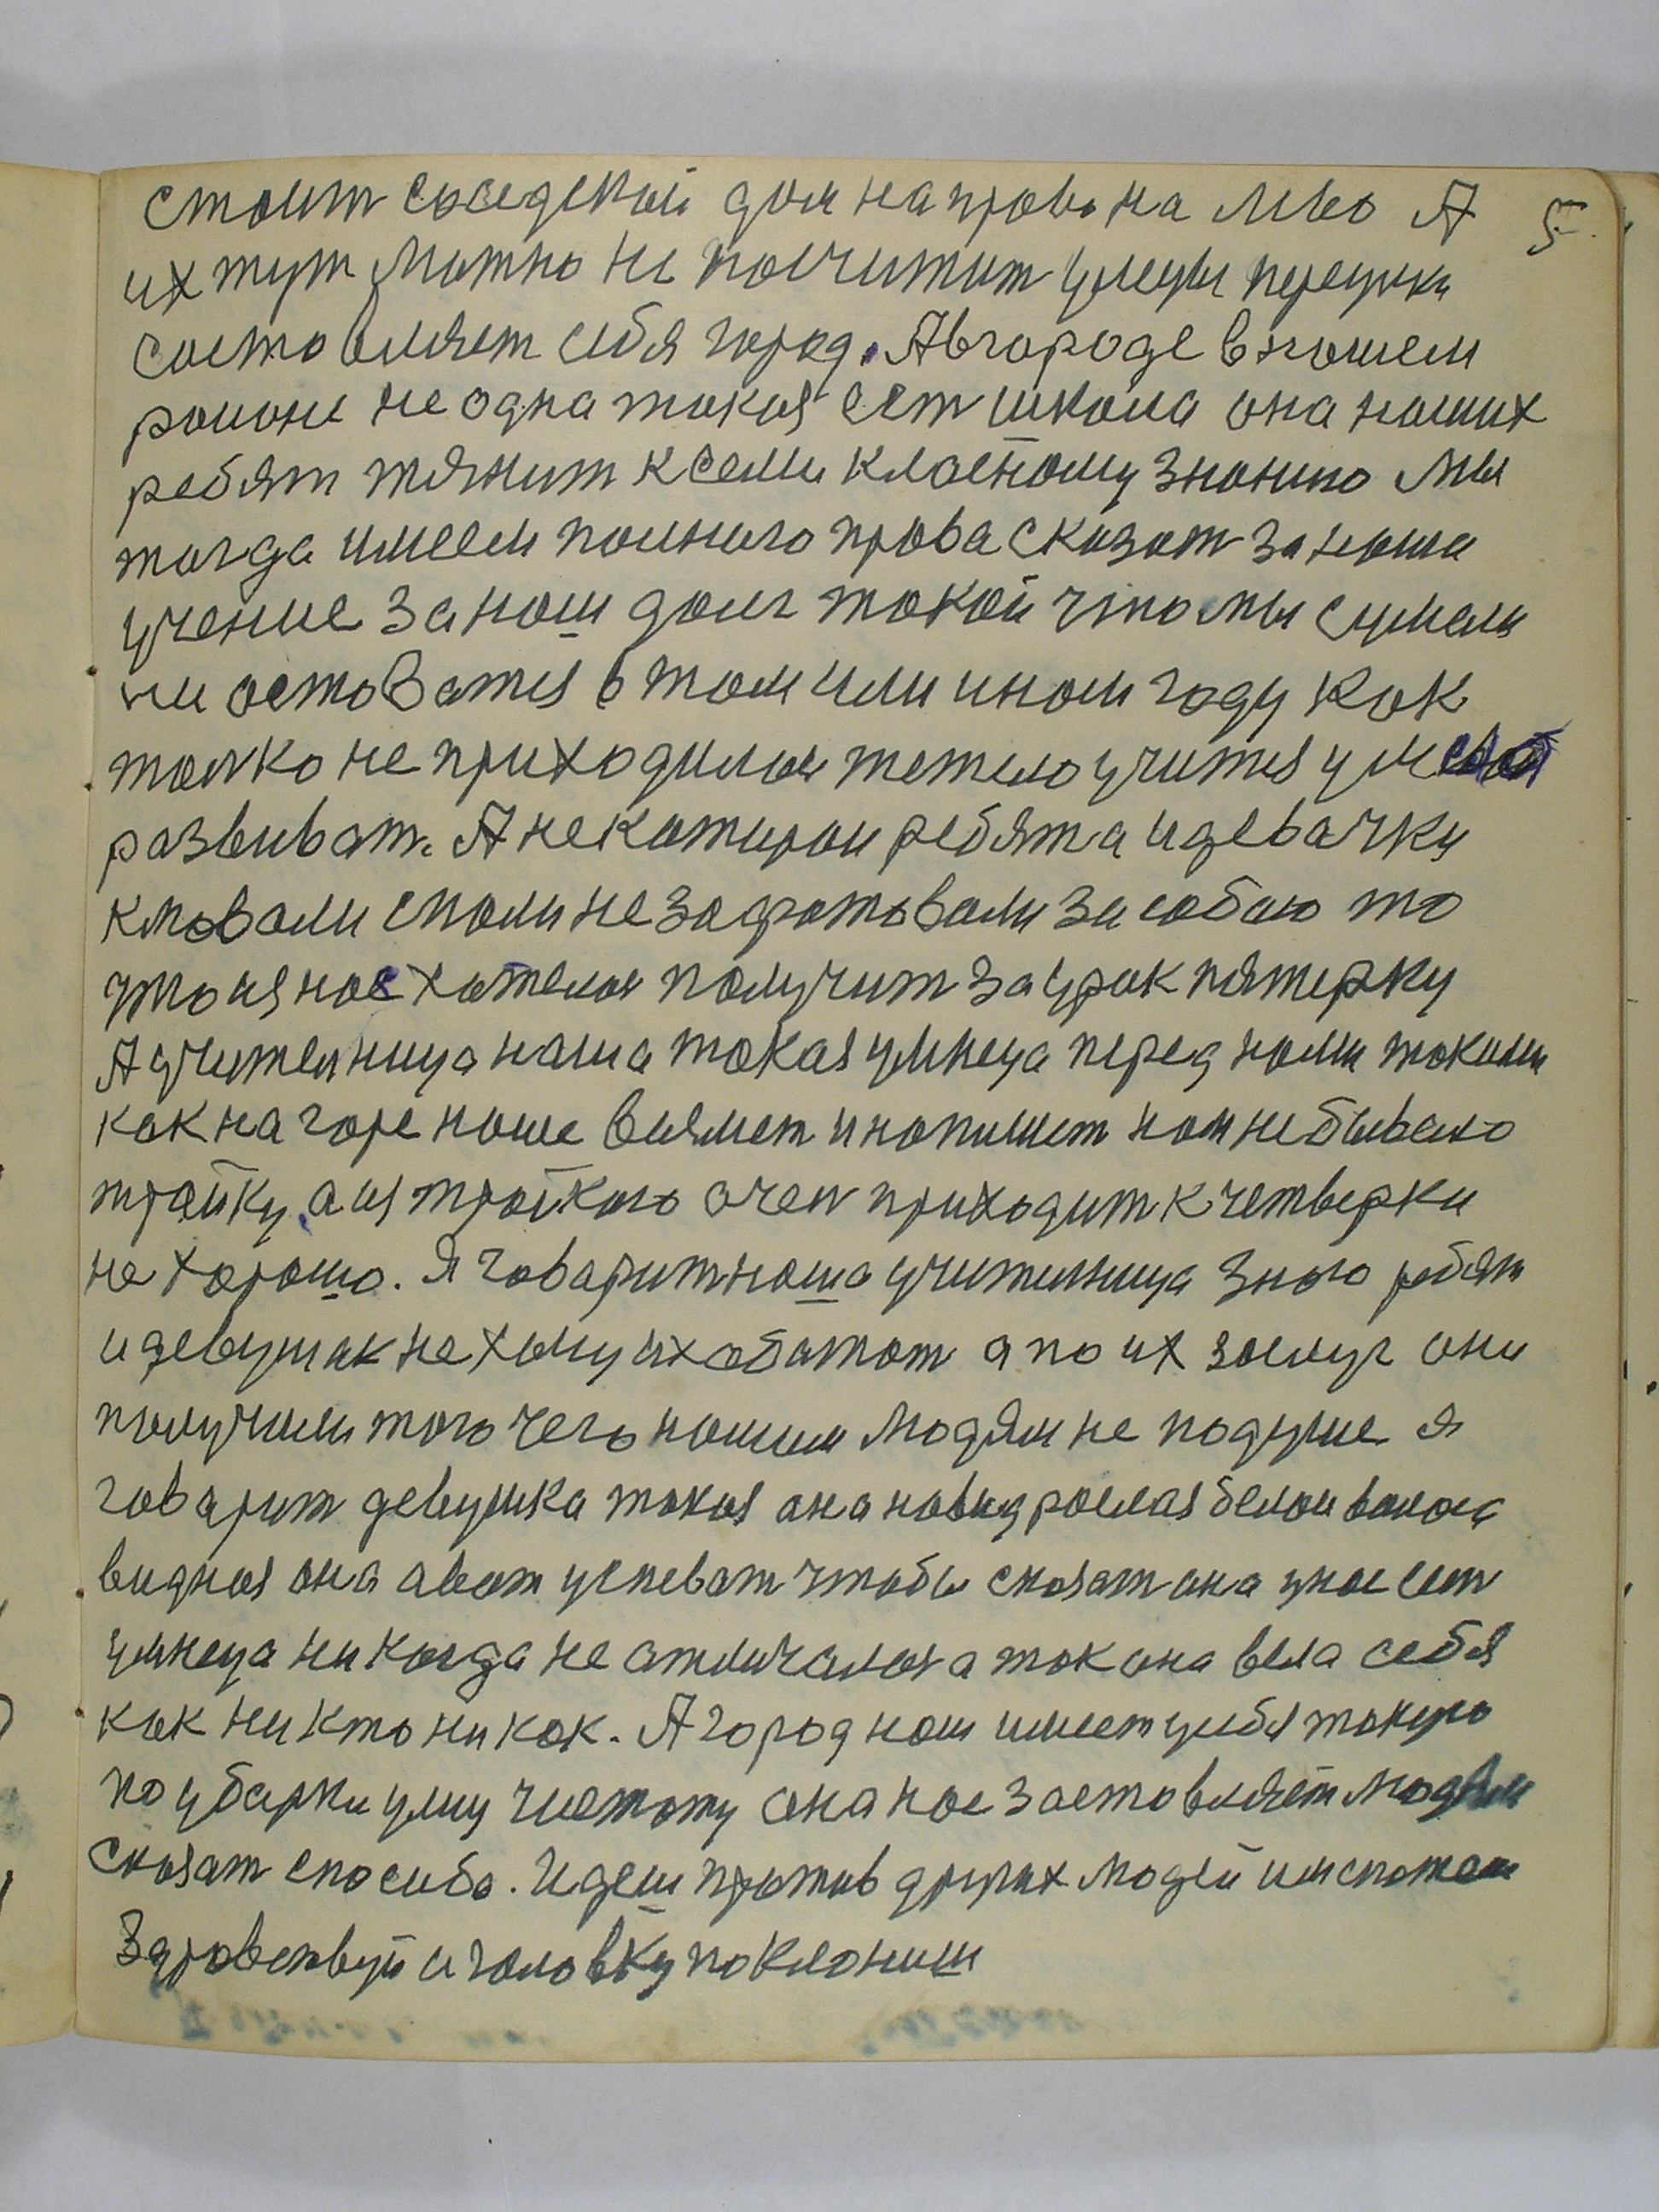 стоит соседской дом на право на лево А 5.
их тут можно не посчитат улецы переулки
состовляет себя город. Авгороде внашем
раионе не одна такия ест школа она наших
ребят тянит ксеми класному знанию Мы
тогда имеем полного права сказат за наша
учение за наш долг такой что мы сумели
ни оставатия в том или ином году как
толко не приходилоя тежело учития ум свой
развиват. А некатирои ребята идевачки
кловали спали не задратовали за собою то
что ия нас хателоя получит за урок пятерку
А учителница наша такая умнеца перед нами такими
как на горе наше вплялет инапишет нам небывало
трайку, а ия тройкаго очен приходит к четверки
не хорошо. Я говарит наша учителница знаю ребят
идевушак не хочу их обатат а по их заслуг они
получили того чего нашим людям не подуше я
говарит девушка такия она навид рослая белаи валоса
видная она авот успеват чтобы сказат она унас ест
умнеца никогда не атличалоя а так она вела себя
как ни кто ни как. А город наш имеет усебя такую
по убарки улиц чистоту она нас застовляет людям
сказат спосибо. Идеш против других людей им скажеш
Здровствуй и головку поклониш